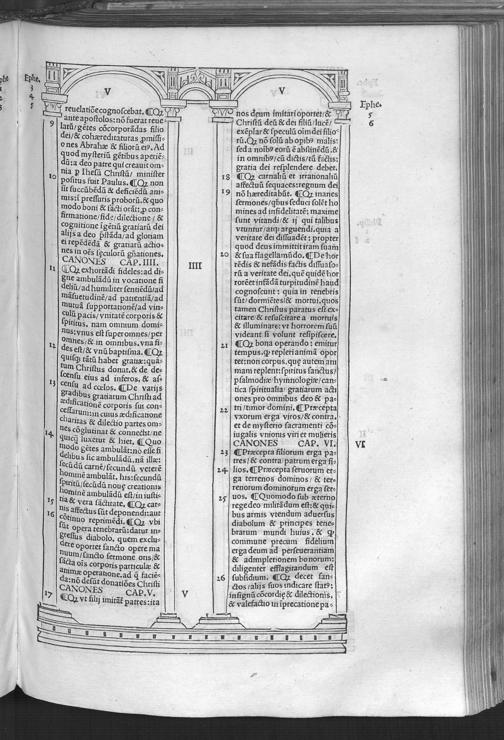 Ephe.
3
4
5
V
reuelatiōe cognoscebat. ¶Qꝫ
ante apostolos: nō fuerat reue
9 latū/ gētes cōcorporādas filio
dei/ & cohæreditaturas ꝓmissi-
ones Abrahæ & filiorū eiꝰ. Ad
quod mysteriū gētibus aperiē-
dū: ita deo patre qui creauit om-
nia ꝑ Iesū Christū/ minister
10 positus fuit Paulus. ¶Qꝫ non
sit succūbēdū & deficiēdū ani-
mis: ī pressuris proborū. & quo
modo boni & sācti orāt: ꝓ con-
firmatione/ fide/ dilectione/ &
cognitione īgēnū gratiarū dei
alijs a deo p̄stāda/ ad gloriam
ei repēdēdā & gratiarū actio-
nes in oēs sęculorū gn̄ationes.
CANONES CAP. IIII.
11 ¶Qꝫ exhortādi fideles: ad di-
gne ambulādū in vocatione fi
deliū/ ad humiliter sentiēdū/ ad
māsuetudinē/ ad patientiā/ ad
mutuā supportationē/ ad vin-
culū pacis/ vnitatē corporis &
spiritus. nam omnium domi-
nus: vnus est super omnes/ per
omnes/ & in omnibus. vna fi-
12 des est/ & vnū baptisma. ¶Qꝫ
quisqꝫ tātū habet gratię: quā-
tum Christus donat. & de de-
scensu eius ad inferos, & as-
13 censu ad cœlos. ¶De varijs
gradibus gratiarum Christi ad
ædificationē corporis sui con-
cessarum: in cuius ædificatione
charitas & dilectio partes om-
nes cōglutinat & connectit/ ne
14 quicꝗ luxetur & hiet. ¶Quo
modo gētes ambulāt: nō esse fi
delibus sic ambulādū. nā illæ:
secūdū carnē/ secundū veterē
hominē ambulāt. his: secundū
spiritū/ secūdū nouę creationis
hominē ambulādū est/ in iusti-
15 tia & vera sāctitate. ¶Qꝫ car-
nis affectus sūt deponendi: aut
16 cōtinuo reprimēdi. ¶Qꝫ vbi
sūt opera tenebrarū: datur in-
gressus diabolo. quem exclu-
dere oportet sancto opere ma
nuum/ sancto sermone oris/ &
sācta oīs corporis particulæ &
animæ operatione. ad ꝗ̄ faciē-
da: nō desūt donatiōes Christi
CANONES CAP. V.
17 ¶Qꝫ vt filij imitāt̄ patres: ita
IIII
V
V
nos deum imitari oportet/ &
Christū: deū & dei filiū/ lucē/
exēplar & speculū oīm dei filio-
rū. Qꝫ nō solū ab opibꝰ malis:
sed a noībꝰ eorū ē abstinēdū. &
in omnibꝰ/ cū dictis/ tū factis:
gratia dei resplendere debet.
18 ¶Qꝫ carnaliū et irrationaliū
affectuū sequaces: regnum dei
19 nō hæreditabūt. ¶Qꝫ inanes
sermones/ qbus seduci solēt ho
mines ad infidelitatē: maxime
sunt vitandi/ & ij qui talibus
vtuntur/ atqꝫ arguendi. quia a
veritate dei dissuadēt: propter
quod deus immittit iram suam
20 & sua flagella mūdo. ¶De hor
rēdis & nefādis factis dissuaso-
rū a veritate dei. que quidē hor
rorēt insāda turpitudinē haud
cognoscunt: quia in tenebris
sūt/ dormiētes/ & mortui. quos
tamen Christus paratus est ex-
citare & resuscitare a mortuis
& illuminare: vt horrorem suū
videant si volunt respiscere.
21 ¶Qꝫ bona operando: emitur
tempus. qꝫ repleri animā opor
tet: non corpus. que autem ani
mam replent: spiritus sanctus/
psalmodiæ/ hymnologiæ/ can-
tica spiritualia/ gratiarum acti
ones pro omnibus deo & pa-
22 tri/ timor domini. ¶Præcepta
vxorum erga viros/ & contra.
et de mysterio sacramenti cō-
iugalis vnionis viri et mulieris
CANONES CAP. VI.
23 ¶Præcepta filiorum erga pa-
tres/ & contra patrum erga fi-
24 lios. ¶Præcepta seruorum er-
ga terrenos dominos/ & ter-
renorum dominorum erga ser
25 uos. ¶Quomodo sub æterno
rege deo militādum est: & qui-
bus armis vtendum aduersus
diabolum & principes tene-
brarum mundi huius. & ꝙ
commune precum fidelium
erga deum ad perseuerantiam
& adimpletionem bonorum:
diligenter efflagitandum est
26 subsidium. ¶Qꝫ decet san-
ctos/ alijs suos indicare statꝰ:
in signū cōcordię & dilectionis.
& valefactio in ꝓrecatione pa-
Ephe.
5
6
VI